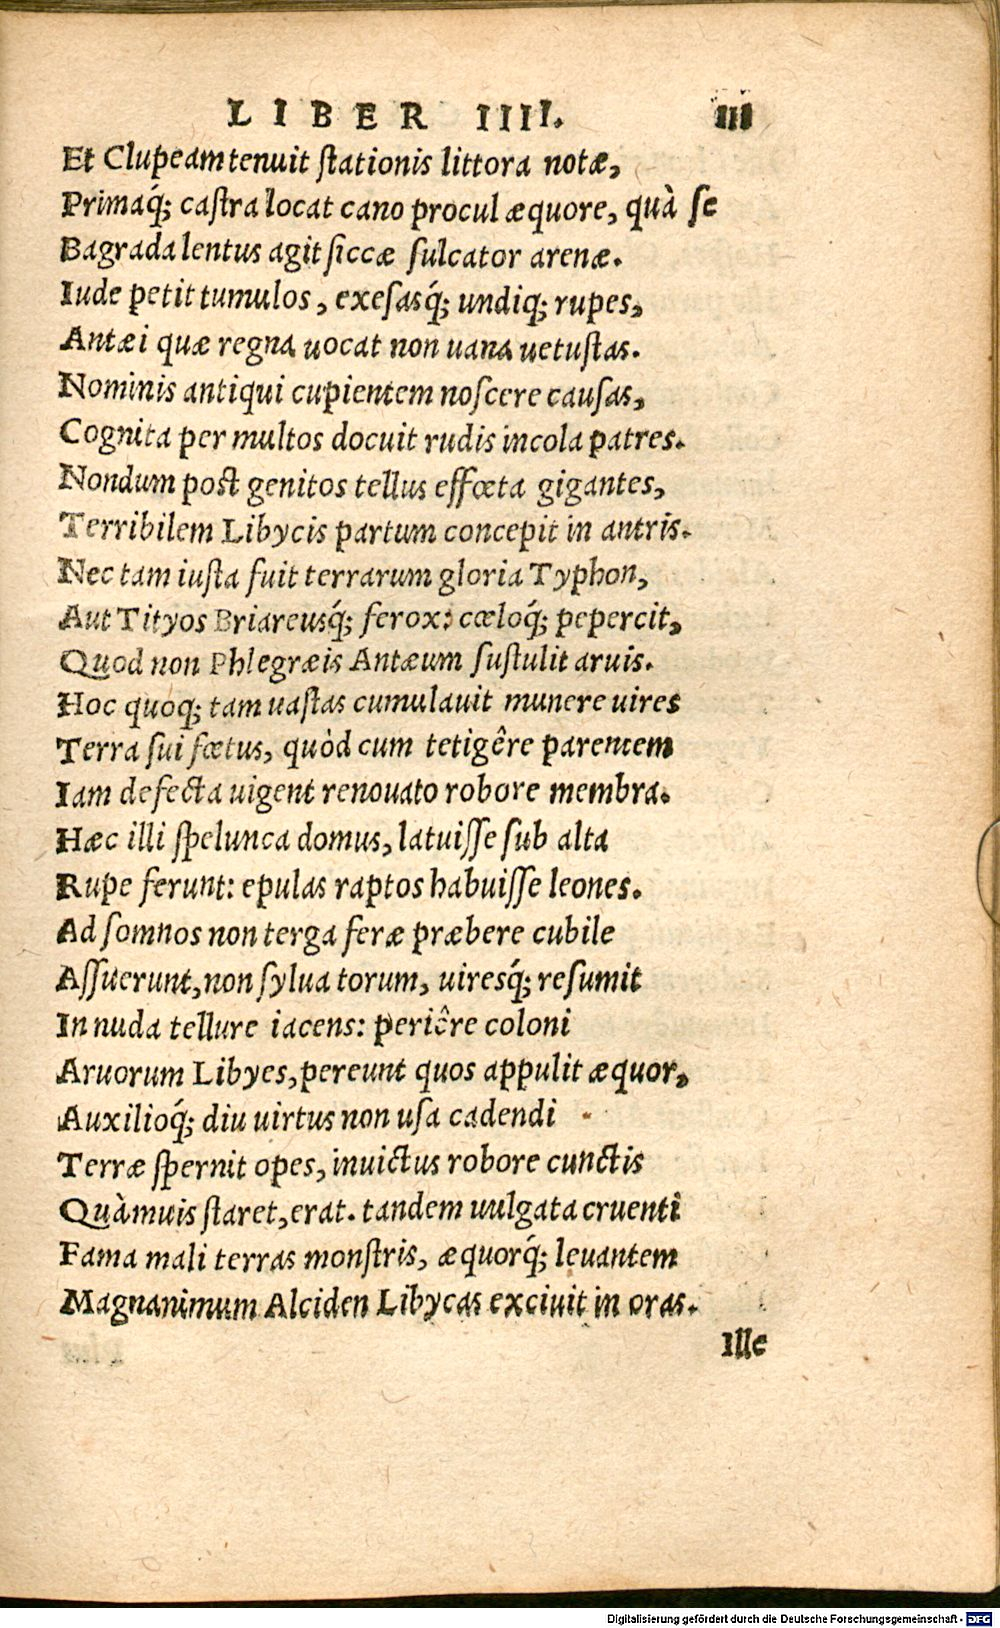 LIBER IIII. 111
Et Clupeam tenuit ſtationis littora notæ,
Primaq́; caſtra locat cano procul æquore, quà ſe
Bagrada lentus agit ſiccæ ſulcator arenæ.
Iude petit tumulos, exeſasq́; undiq; rupes,
Antæi quæ regna uocat non uana uetuſtas.
Nominis antiqui cupientem noſcere cauſas,
Cognita per multos docuit rudis incola patres.
Nondum poſt genitos tellus effœta gigantes,
Terribilem Libycis partum concepit in antris.
Nec tam iuſta fuit terrarum gloria Typhon,
Aut Tityos Briareusq́; ferox: cœloq́; pepercit,
Quod non Phlegræis Antæum ſuſtulit aruis.
Hoc quoq; tam uaſtas cumulauit munere uires
Terra ſui fœtus, quòd cum tetigêre parentem
Iam defecta uigent renouato robore membra.
Hæc illi ſpelunca domus, latuiſſe ſub alta
Rupe ferunt: epulas raptos habuiſſe leones.
Ad ſomnos non terga feræ præbere cubile
Aſſuerunt, non ſylua torum, uiresq́; reſumit
In nuda tellure iacens: periêre coloni
Aruorum Libyes, pereunt quos appulit æquor,
Auxilioq́; diu uirtus non uſa cadendi
Terræ ſpernit opes, inuictus robore cunctis
Quàmuis ſtaret, erat. tandem uulgata cruenti
Fama mali terras monſtris, æquorq́; leuantem
Magnanimum Alciden Libycas exciuit in oras.
Ille
Digitalisierung gefördert durch die Deutsche Forschungsgemeinschaft - DFG